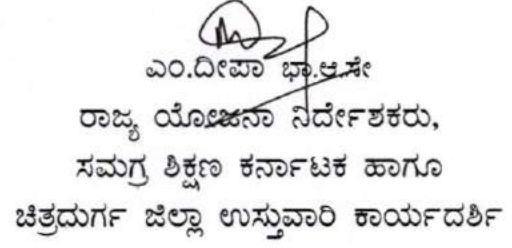 ಎಂ.ದೀಪಾ ಭಾ.ಆ.ಸೇ
ರಾಜ್ಯ ಯೋಜನಾ ನಿರ್ದೇಶಕರು,
ಸಮಗ್ರ ಶಿಕ್ಷಣ ಕರ್ನಾಟಕ ಹಾಗೂ
ಚಿತ್ರದುರ್ಗ ಜಿಲ್ಲಾ ಉಸ್ತುವಾರಿ ಕಾರ್ಯದರ್ಶಿ